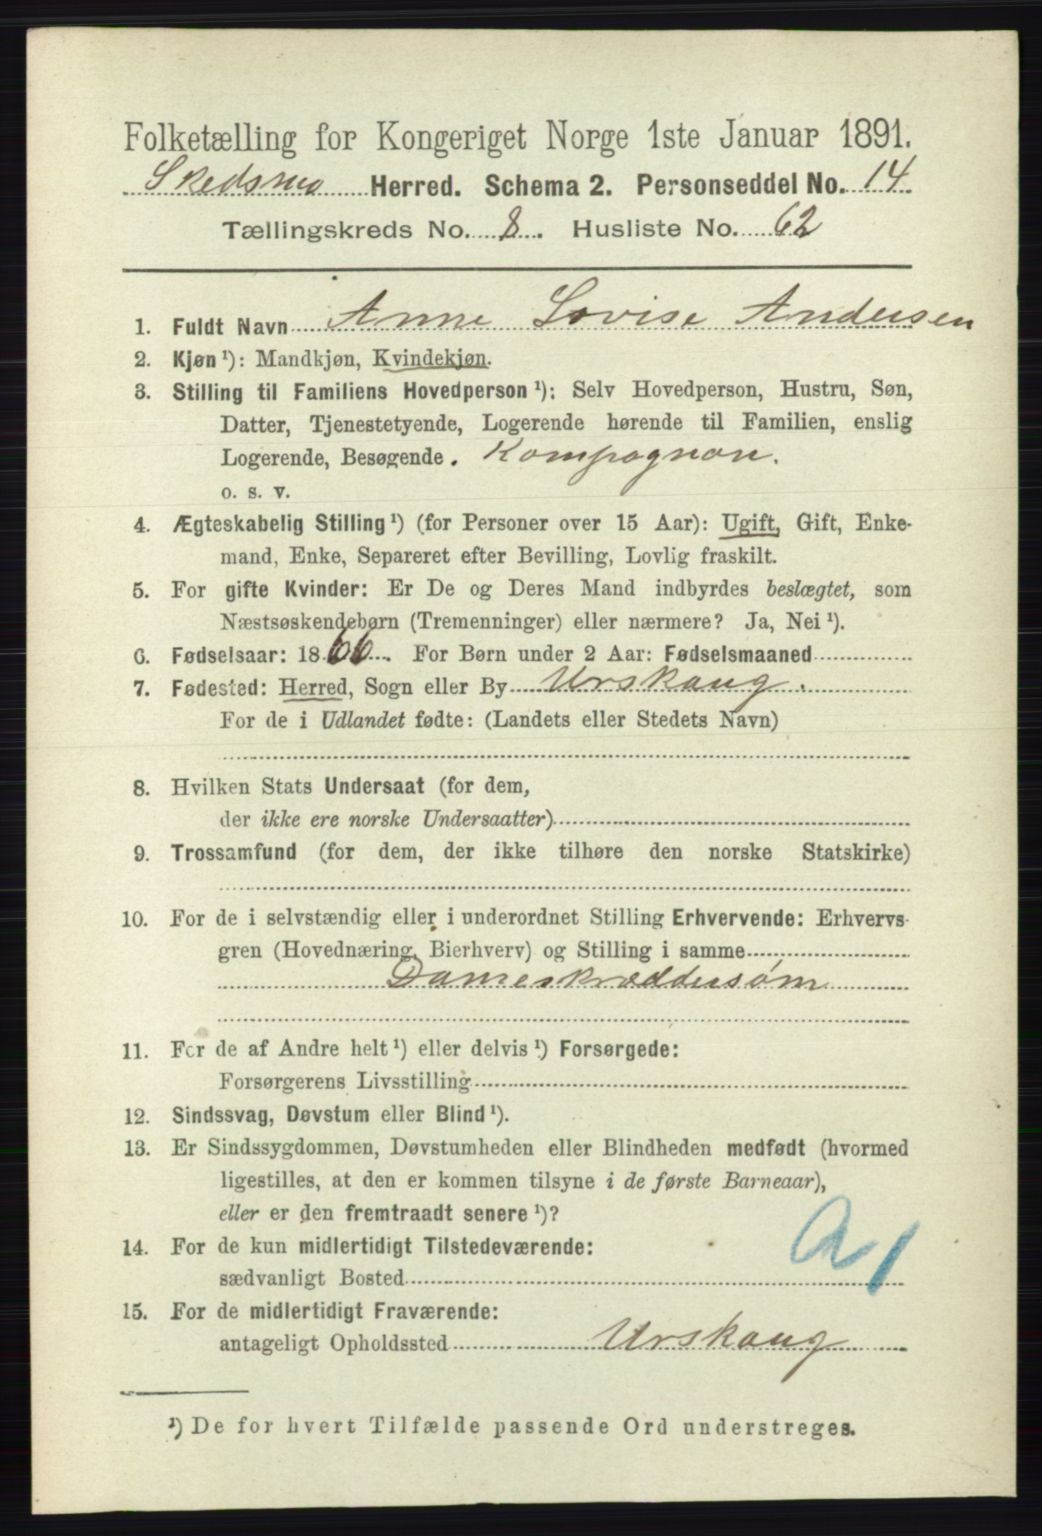 Folketælling for Kongeriget Norge 1ste Januar 1891.
Skedsmo Herred. Schema 2. Personseddel No. 14
Tællingskreds No. 8. Husliste No. 62
1. Fuldt Navn Anne Lovise Andersen
2. Kjøn ¹): Mandkjøn, Kvindekjøn.
3. Stilling til Familiens Hovedperson ¹): Selv Hovedperson, Hustru, Søn,
Datter, Tjenestetyende, Logerende hørende til Familien, enslig
Logerende, Besøgende. Kompagnon.
o. s. v.
4. Ægteskabelig Stilling ¹) (for Personer over 15 Aar): Ugift, Gift, Enke-
mand, Enke, Separeret efter Bevilling, Lovlig fraskilt.
5. For gifte Kvinder: Er De og Deres Mand indbyrdes beslægtet, som
Næstsøskendebørn (Tremenninger) eller nærmere? Ja, Nei ¹).
6. Fødselsaar: 1866. For Børn under 2 Aar: Fødselsmaaned
7. Fødested: Herred, Sogn eller By Urskaug.
For de i Udlandet fødte: (Landets eller Stedets Navn)
8. Hvilken Stats Undersaat (for dem,
der ikke ere norske Undersaatter)
9. Trossamfund (for dem, der ikke tilhøre den norske Statskirke)
10. For de i selvstændig eller i underordnet Stilling Erhvervende: Erhvervs-
gren (Hovednæring, Bierhverv) og Stilling i samme
Dameskræddersøm
11. For de af Andre helt ¹) eller delvis ¹) Forsørgede:
Forsørgerens Livsstilling
12. Sindssvag, Døvstum eller Blind ¹).
13. Er Sindssygdommen, Døvstumheden eller Blindheden medfødt (hvormed
ligestilles, at den er kommen tilsyne i de første Barneaar),
eller er den fremtraadt senere ¹)?
14. For de kun midlertidigt Tilstedeværende:
sædvanligt Bosted
15. For de midlertidigt Fraværende:
antageligt Opholdssted Urskaug
¹) De for hvert Tilfælde passende Ord understreges.